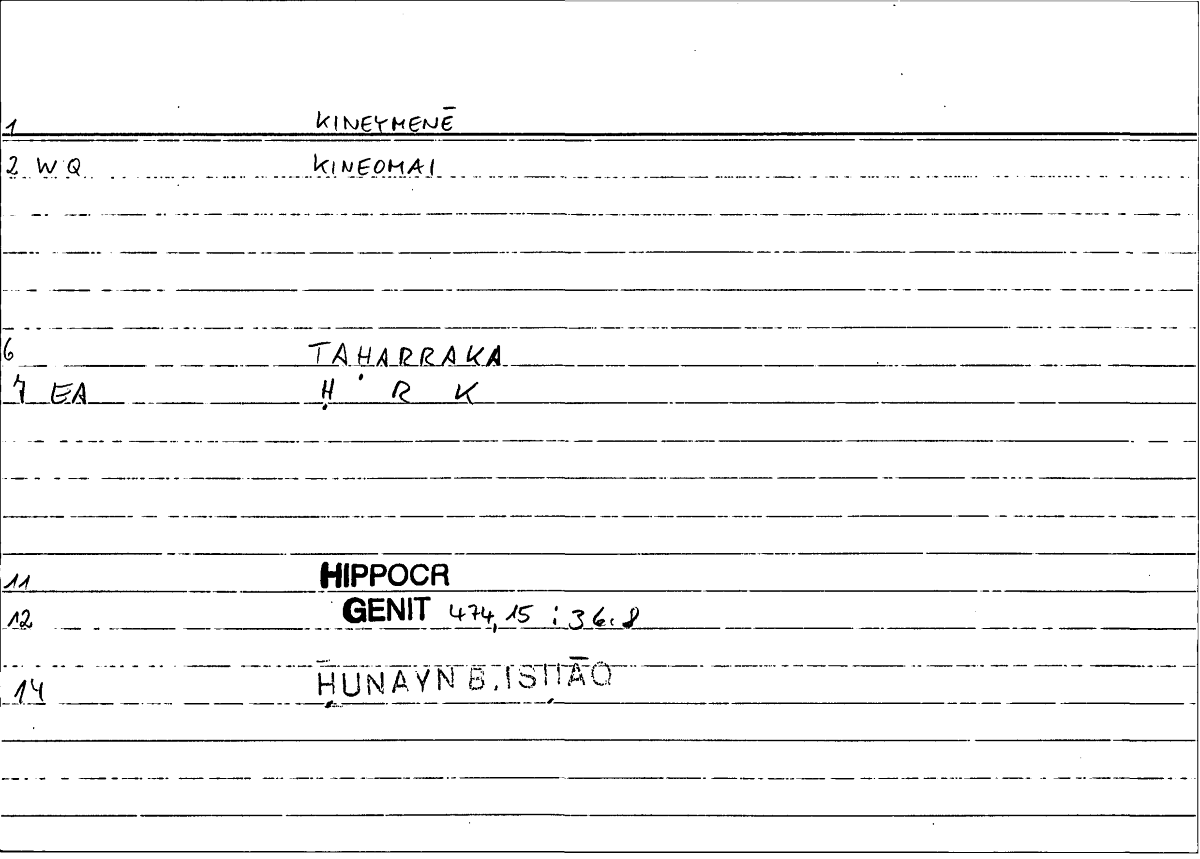 1 KINEYMENĒ
2 WQ KINEOMAI
6 TAḤARRAKA
7 EA Ḥ R K
11 HIPPOCR
12 GENIT 474,15 : 36.8
14 ḤUNAYN B. ISḤĀQ